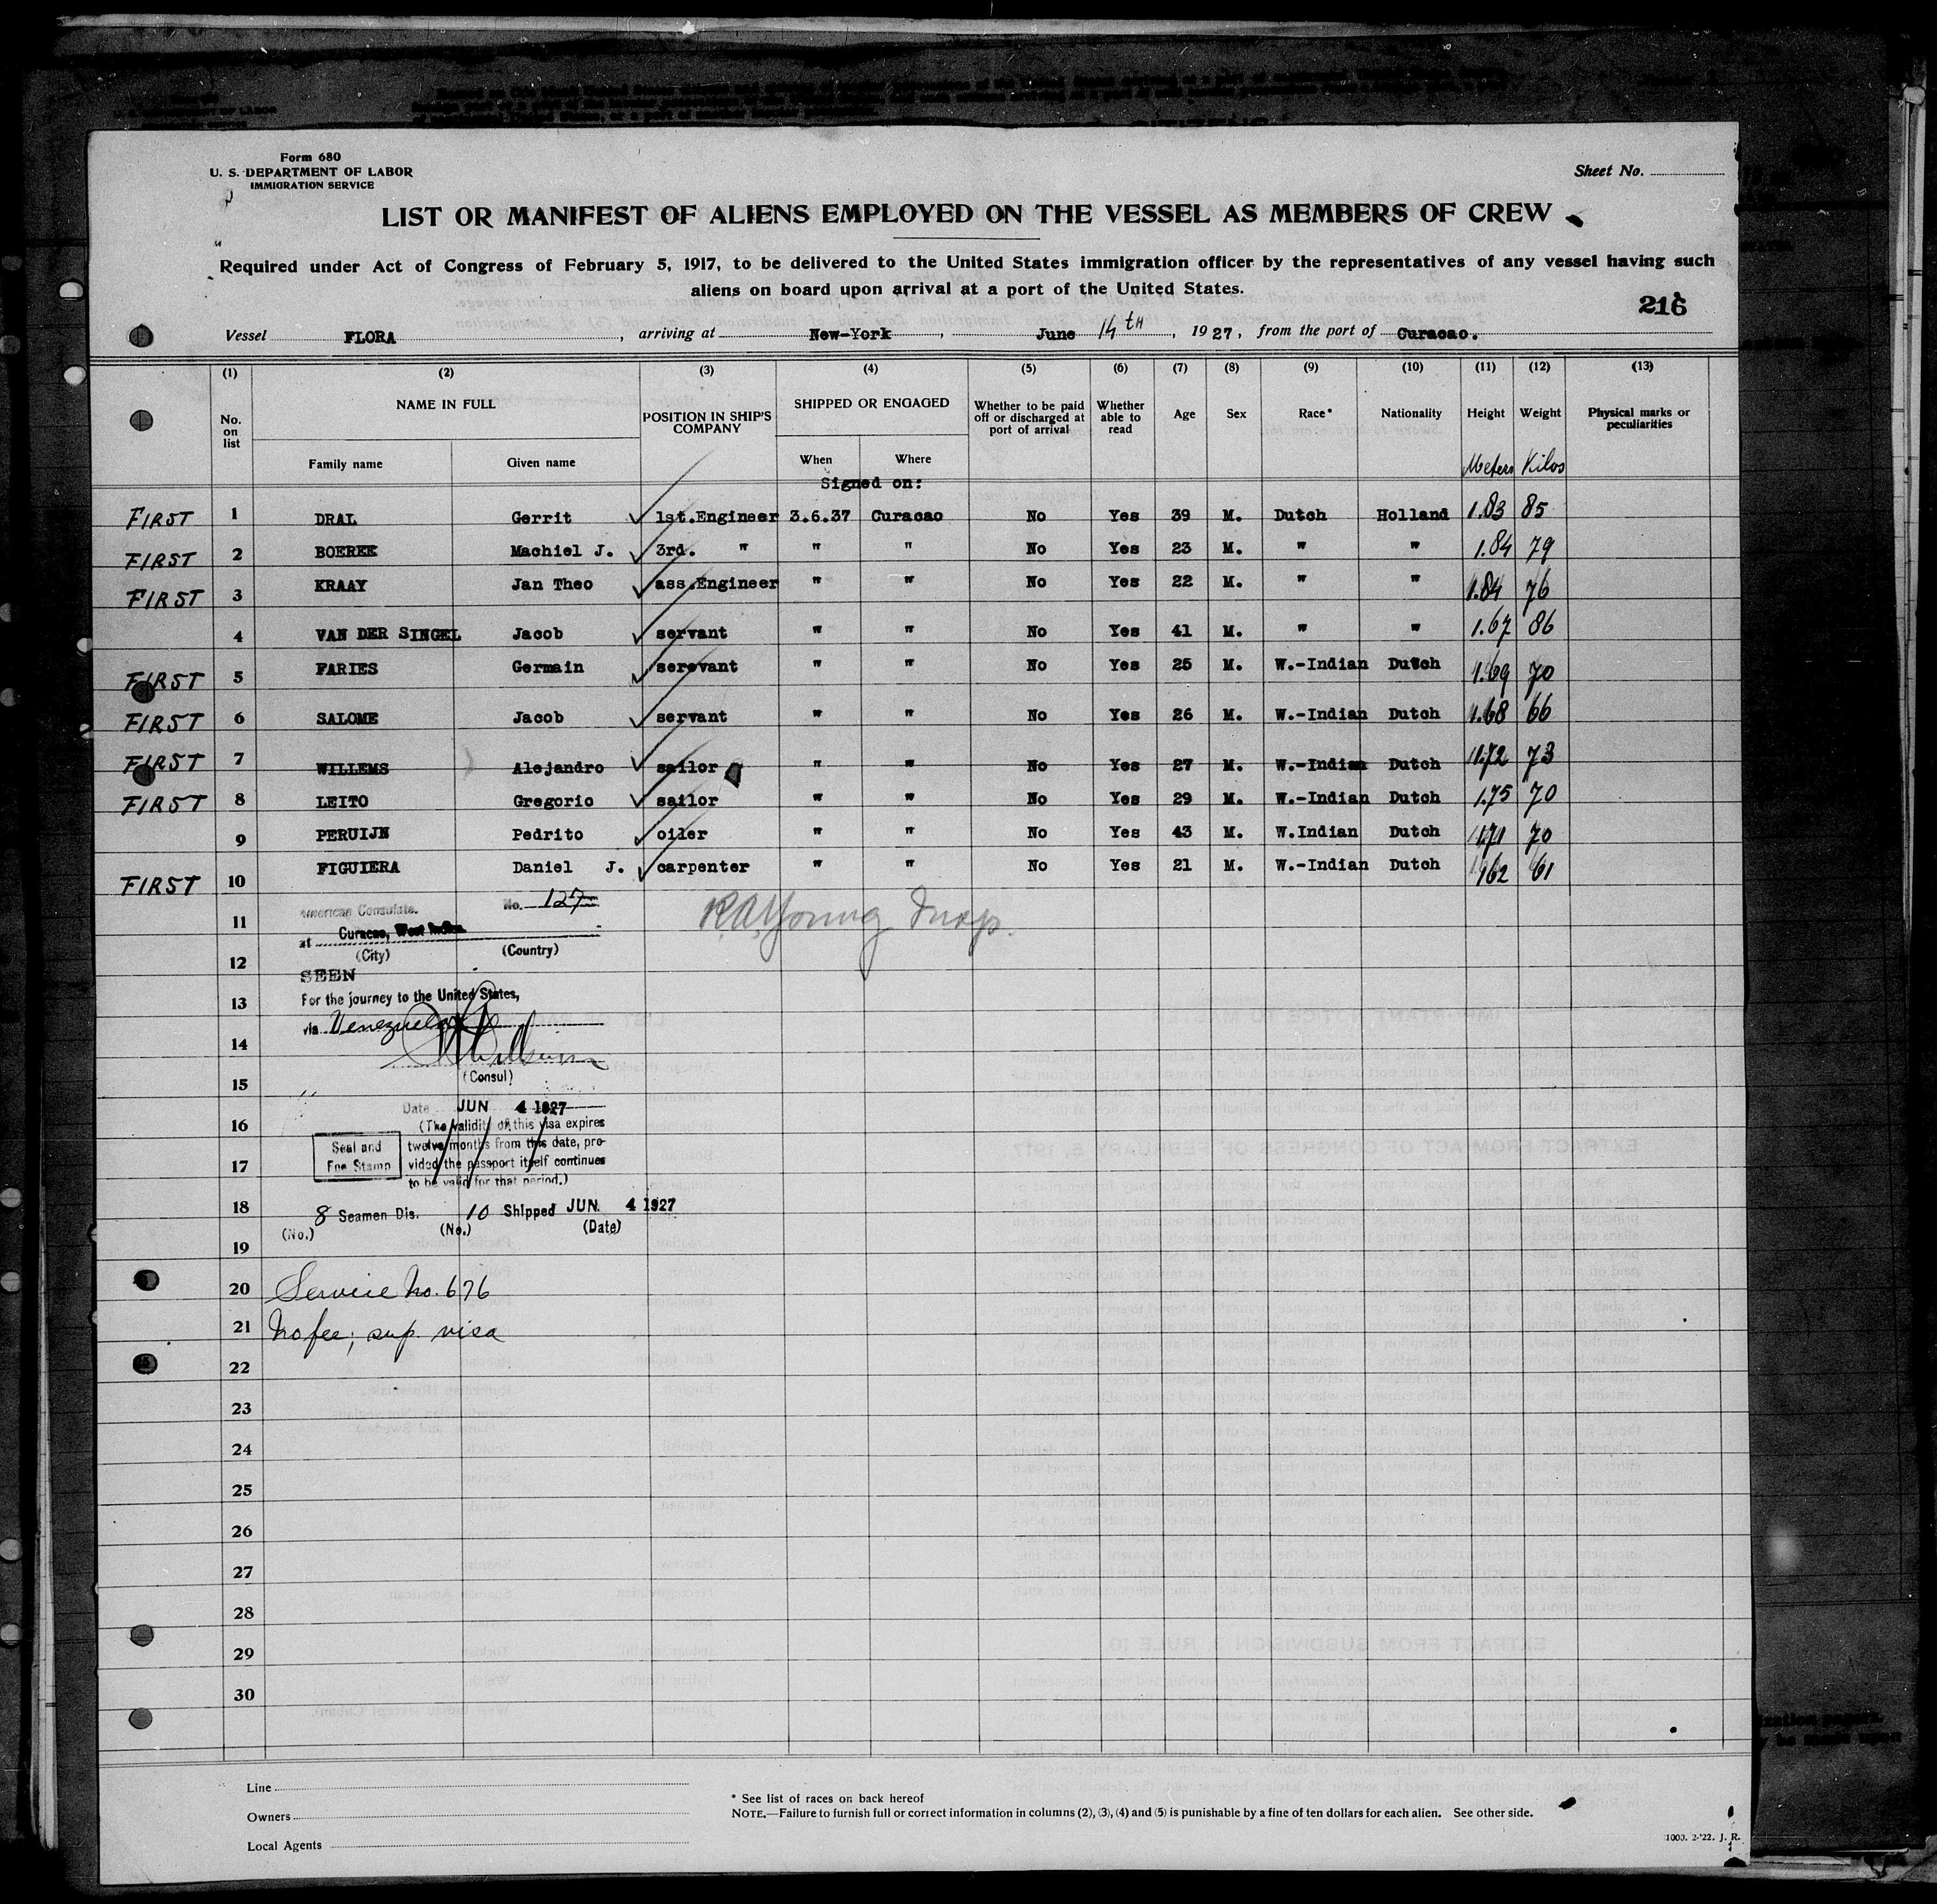 Form 680
U. S. DEPARTMENT OF LABOR
IMMIGRATION SERVICE
Sheet No.
LIST OR MANIFEST OF ALIENS EMPLOYED ON THE VESSEL AS MEMBERS OF CREW
Required under Act of Congress of February 5, 1917, to be delivered to the United States immigration officer by the representatives of any vessel having such
aliens on board upon arrival at a port of the United States.
216
Vessel FLORA, arriving at New-York, June 14th, 1927, from the port of Curacao.
(1) (2) (3) (4) (5) (6) (7) (8) (9) (10) (11) (12) (13)
No. on list NAME IN FULL POSITION IN SHIP'S COMPANY SHIPPED OR ENGAGED Whether to be paid off or discharged at port of arrival Whether able to read Age Sex Race* Nationality Height Weight Physical marks or peculiarities
Family name Given name When Where Meters Kilos
Signed on:
FIRST 1 DRAL Gerrit 1st.Engineer 3.6.37 Curacao No Yes 39 M. Dutch Holland 1.83 85
FIRST 2 BOEREE Machiel J. 3rd. " " " No Yes 23 M. " " 1.84 79
FIRST 3 KRAAY Jan Theo ass.Engineer " " No Yes 22 M. " " 1.84 76
4 VAN DER SINGEL Jacob servant " " No Yes 41 M. " " 1.67 86
FIRST 5 FARIES Germain serevant " " No Yes 25 M. W.-Indian Dutch 1.69 70
FIRST 6 SALOME Jacob servant " " No Yes 26 M. W.-Indian Dutch 1.68 66
FIRST 7 WILLEMS Alejandro sailor " " No Yes 27 M. W.-Indian Dutch 1.72 73
FIRST 8 LEITO Gregorio sailor " " No Yes 29 M. W.-Indian Dutch 1.75 70
9 PERUIJN Pedrito oiler " " No Yes 43 M. W.Indian Dutch 1.71 70
FIRST 10 FIGUIERA Daniel J. carpenter " " No Yes 21 M. W.-Indian Dutch 1.62 61
American Consulate. No. 127
11 R.A. Young Insp.
at Curacao, West Indies
(City) (Country)
12
SEEN
13 For the journey to the United States,
via Venezuela
14
(Consul)
15
Date JUN 4 1927
16 (The validity of this visa expires
Seal and Fee Stamp
twelve months from this date, pro-
17 vided the passport itself continues
to be valid for that period.)
18 8 Seamen Dis. 10 Shipped JUN. 4 1927
(No.) (No.) (Date)
19
20 Service No. 676
21 No fee; sup. visa
22
23
24
25
26
27
28
29
30
Line
Owners
Local Agents
* See list of races on back hereof
NOTE.—Failure to furnish full or correct information in columns (2), (3), (4) and (5) is punishable by a fine of ten dollars for each alien. See other side.
1000. 2-'22. J. R.